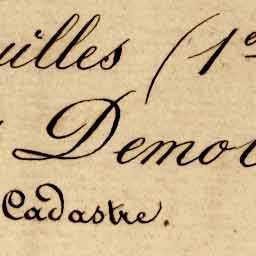 uilles (1e
Demo
Cadastre.